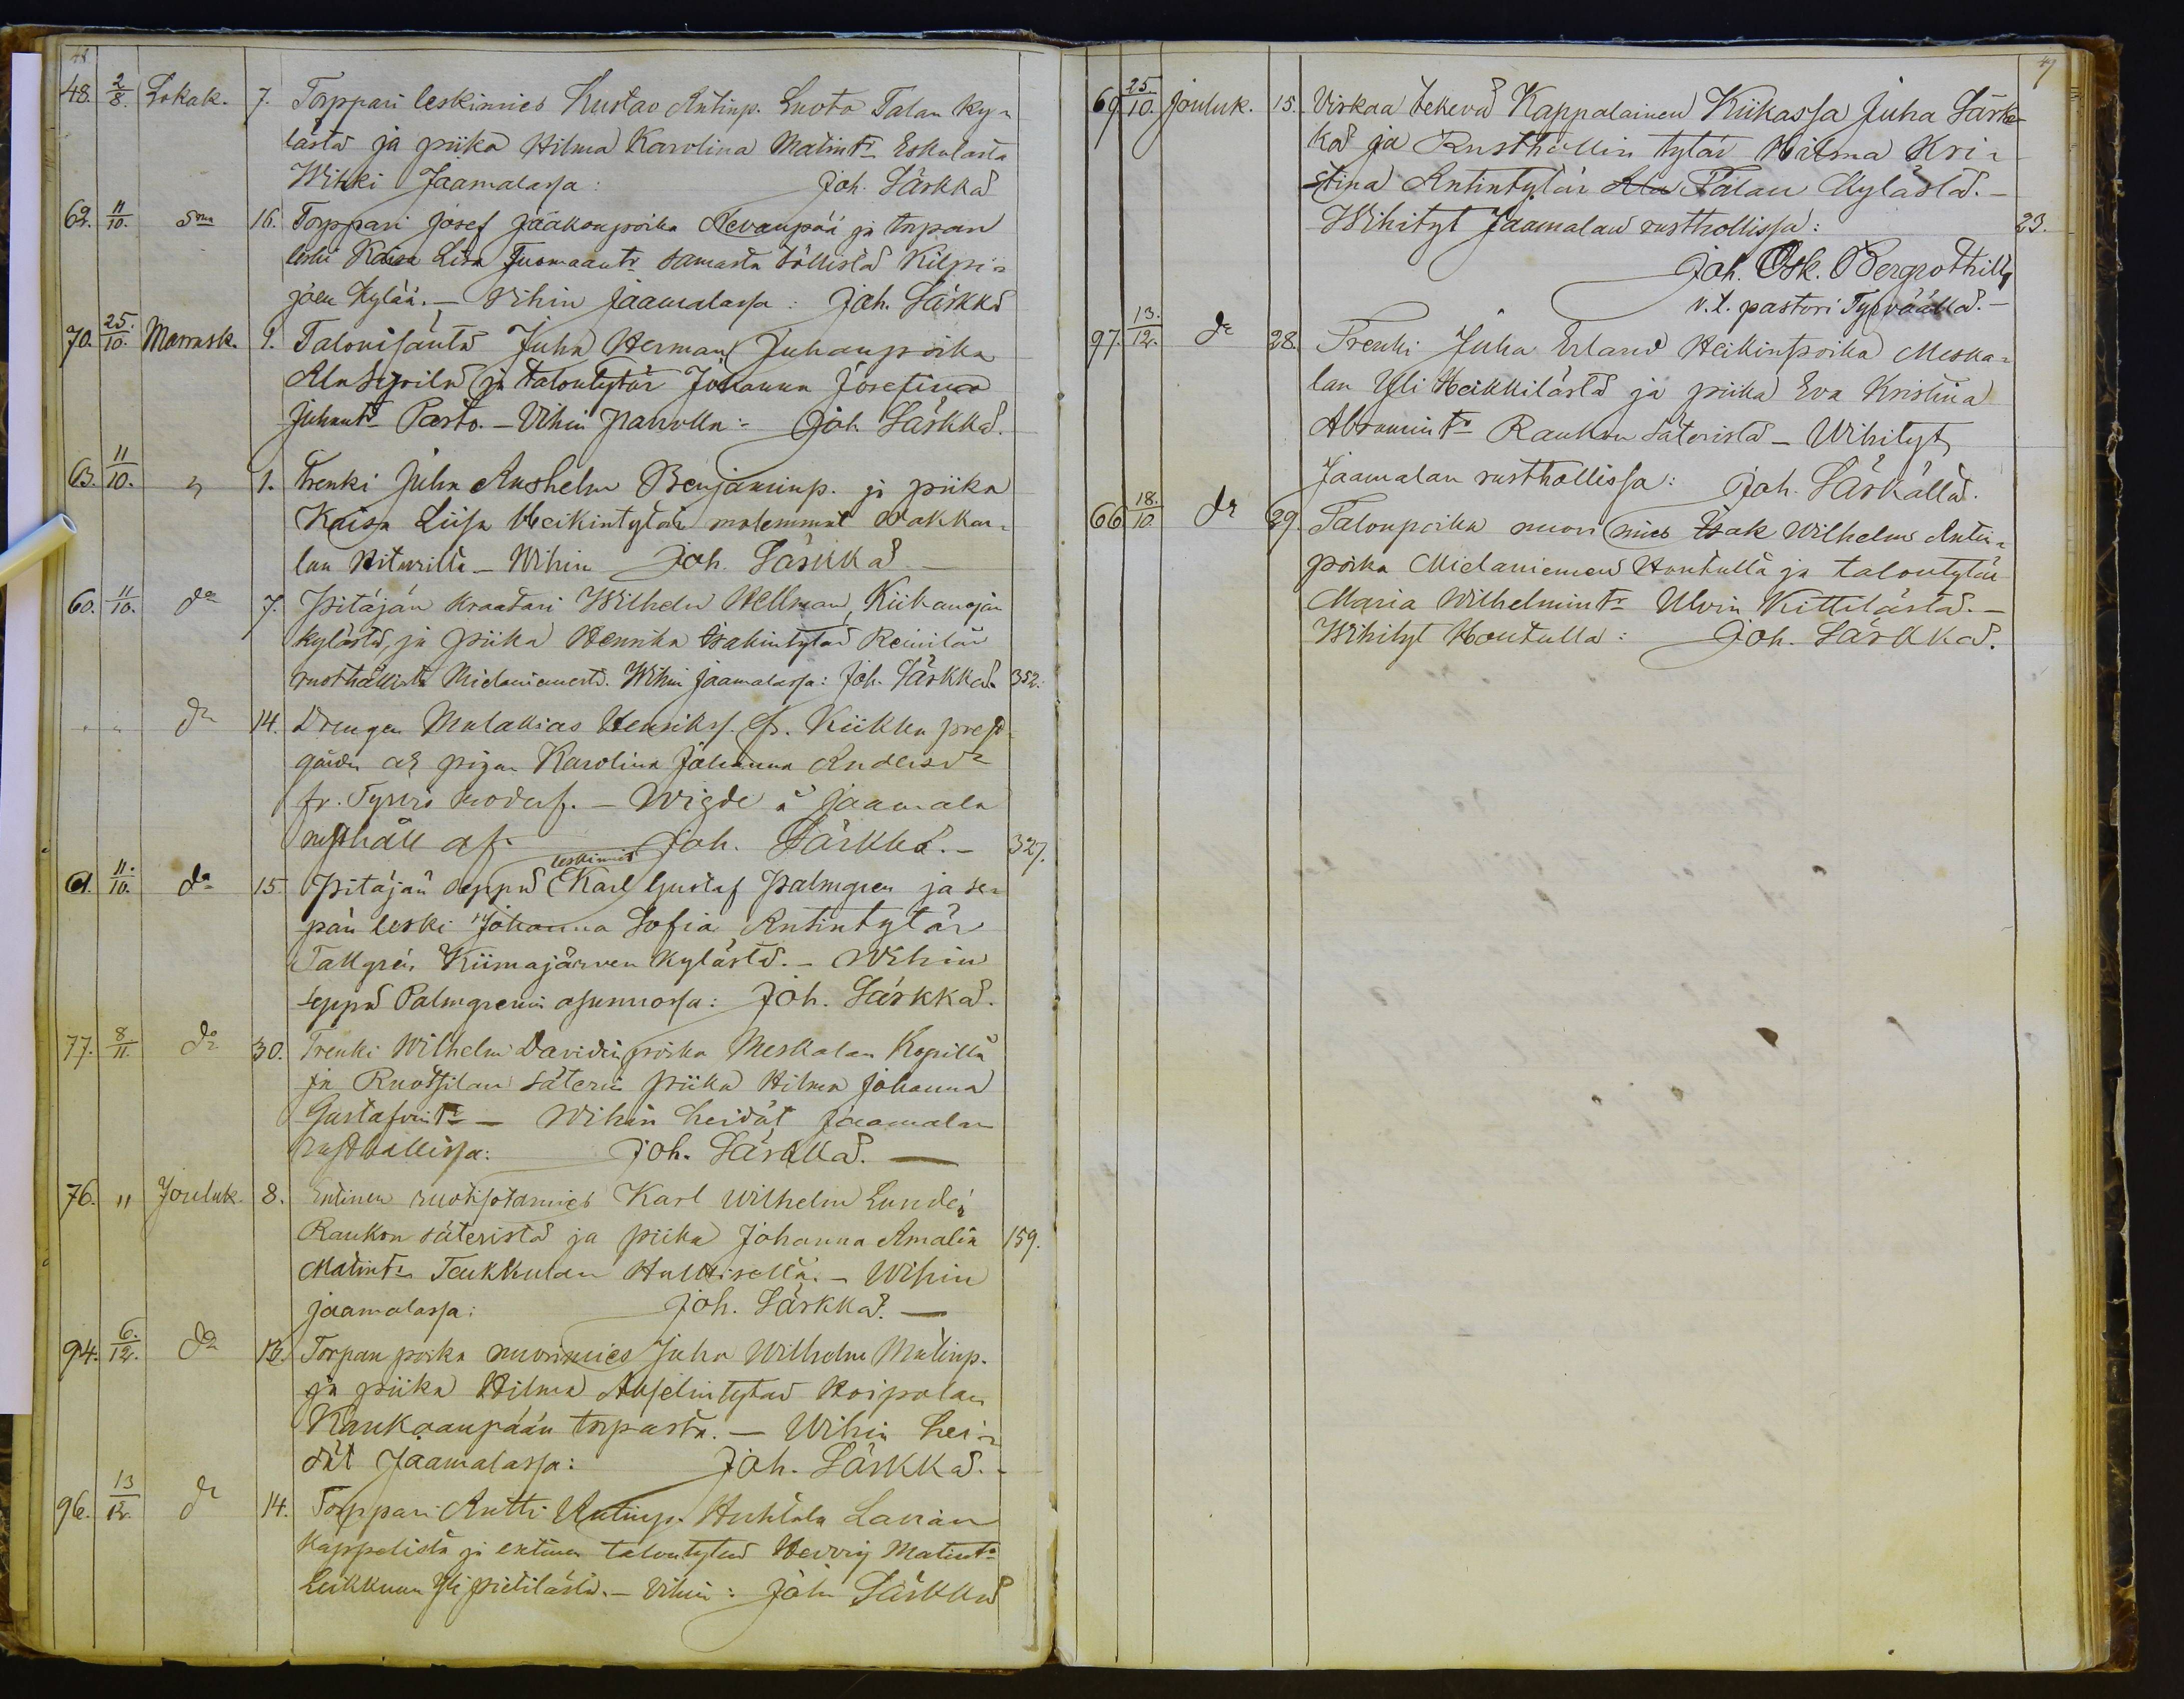 48
48. 2/8. Lokak. 7. Torppari leskimies Kustav Antinp. Luoto Talan ky-
lästä ja piika Hilma Karolina Matint:r Eskolasta
Wihki Jaamalassa: Joh. Särkkä
62. 11/10. 16. Torppari Josef Jaakonpoika Nevanpää ja torpan
leski Kaisa Lisa Tuomaantr samasta töllistä Kilpi-
joen kylää. – Vihin Jaamalassa: Joh. Särkkä
70. 25./10. Marrask. 1. Talonisäntä Juha Herman Juhanpoika
Ala Sipilä ja talontytär Johanna Josefina
Juhantr Pasto. – Vihin : Joh. Särkkä.
63. 11/10. " 1. Trenki Juha Anshelm Benjaminp. ja piika
Kaisa Liisa Heikintytär molemmat Wakka-
lan – Wihin Joh. Särkkä
60. 11/10. do 7. Pitäjän kraatari Wilhelm Hellman, Kiikanojan
kylästä, ja piika Henrika Isakintytär Reinilän
rusthollista Mielaniemestä. Wihin Jaamalassa: Joh. Särkkä. 352.
" " do 14. Drengen Malakias Henrikss. fr. Kiikka prest
gården och pigan Karolina Johanna Andersdr
fr. Tyrvis moderf. – Wigde å Jaamala
rusthåll af. Joh. Särkkä. – 327.
61. 11./10. do 15. Pitäjän seppä leskimies Karl Gustaf Palmgren ja se-
pän leski Johanna Sofia Antintytär
Tallgrén Kiimajärven kylästä. – Wihin
seppä Palmgrenin asunnossa: Joh. Särkkä.
77. 8/11. do 30. Trenki Wilhelm Davidinpoika Meskalan Kopillä
ja Ruotsilan säterin piika Hilma Johanna
Gustafvintr – Wihin heidät Jaamalan
rusthallissa: Joh. Särkkä. —
76. " Jouluk. 8. Entinen ruotisotamies Karl Wilhelm Lundén
Raukon säteristä ja piika Johanna Amalia 159.
Matintr Taukkulan – Wihin
Jaamalassa: Joh. Särkkä. —
94. 6./12. do 13. Torpan poika nuorimies Juha Wilhelm Matinp.
ja piika Hilma Anselmintytär Roipolan
Kaukaanpään torpasta. – Wihin hei-
dät Jaamalassa: Joh. Särkkä. –
96. 13/12. do 14. Torppari Antti Antinp. Huhtala Lavian
kappelista ja entinen talontytär Matintr
Leikkuun Yli Pietilästä. – Vihin: Joh Särkkä
49
69 25./10. Jouluk. 15. Virkaa tekevä Kappalainen Kiikassa Juha Särk-
kä ja Rusthollin tytär Hilma Kri-
stina Antintytär Ala Talan kylästä. –
Wihityt Jaamalan rusthollissa: 23.
Joh. Osk. Bergrothilta
v. t. pastori Tyrväällä. –
97. 13./12. do 28. Trenki Juha Erland Heikinpoika Meska-
lan Yli Heikkilästä ja piika Eva Kristina
Abramintr Raukon säteristä – Wihityt
Jaamalan rusthollissa: Joh. Särkältä.
66 18./10. do 29. Talonpoika nuori mies Isak Wilhelm Antin-
poika Mielaniemen Hontulta ja talontytär
Maria Wilhelmintr Ulvin Kittilästä. –
Wihityt Hontulla: Joh. Särkkä.